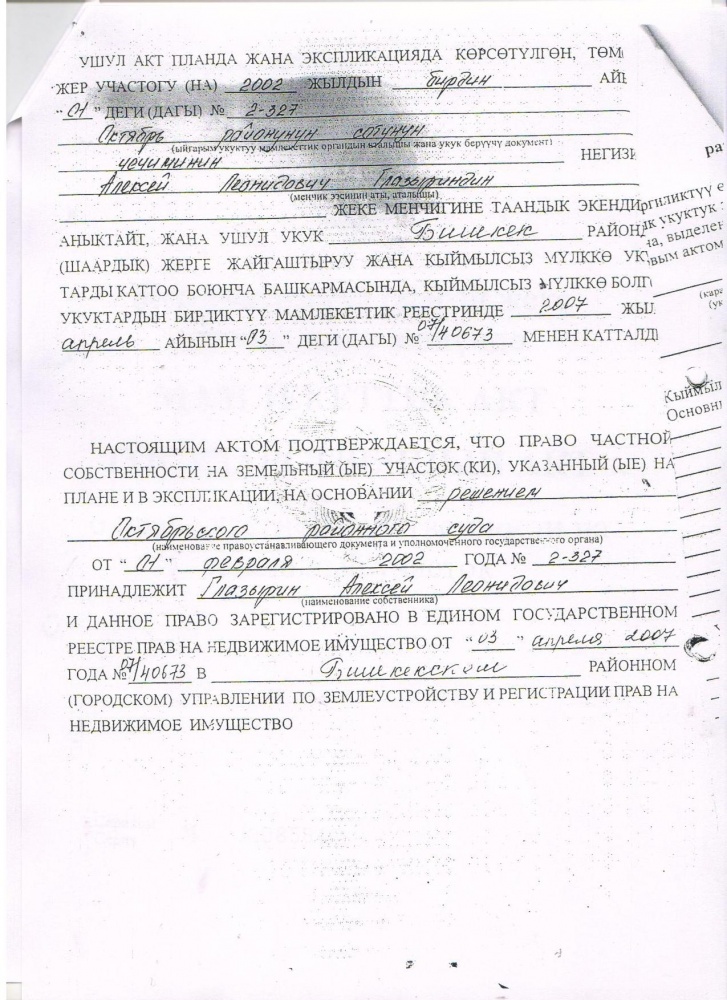 УШУЛ АКТ ПЛАНДА ЖАНА ЭКСПЛИКАЦИЯДА КӨРСӨТҮЛГӨН, ТӨМ
ЖЕР УЧАСТОГУ (НА) 2002 ЖЫЛДЫН бирдин АЙЫ
“01” ДЕГИ (ДАГЫ) № 2-327
Октябрь районунун сотунун
(ыйгарым укуктуу мамлекеттик органдын аталышы жана укук берүүчү документ)
чечиминин НЕГИЗИ
Алексей Леонидович Глазыриндин
(менчик ээсинин аты, аталышы)
ЖЕКЕ МЕНЧИГИНЕ ТААНДЫК ЭКЕНДИ
АНЫКТАЙТ, ЖАНА УШУЛ УКУК Бишкек РАЙОН
(ШААРДЫК) ЖЕРГЕ ЖАЙГАШТЫРУУ ЖАНА КЫЙМЫЛСЫЗ МҮЛККӨ УКУ
ТАРДЫ КАТТОО БОЮНЧА БАШКАРМАСЫНДА, КЫЙМЫЛСЫЗ МҮЛККӨ БОЛГ
УКУКТАРДЫН БИРДИКТҮҮ МАМЛЕКЕТТИК РЕЕСТРИНДЕ 2007 ЖЫЛ
апрель АЙЫНЫН “03” ДЕГИ (ДАГЫ) № 07/40673 МЕНЕН КАТТАЛДЫ
ра
ргиликтүү
ык укуктук
на, выделен
вым актом
(кара
(ук
Кыймыл
Основн
НАСТОЯЩИМ АКТОМ ПОДТВЕРЖДАЕТСЯ, ЧТО ПРАВО ЧАСТНОЙ
СОБСТВЕННОСТИ НА ЗЕМЕЛЬНЫЙ (ЫЕ) УЧАСТОК (КИ), УКАЗАННЫЙ (ЫЕ) НА
ПЛАНЕ И В ЭКСПЛИКАЦИИ, НА ОСНОВАНИИ решением
Октябрьского районного суда
(наименование правоустанавливающего документа и уполномоченного государственного органа)
ОТ “01” февраля 2002 ГОДА № 2-327
ПРИНАДЛЕЖИТ Глазырин Алексей Леонидович
(наименование собственника)
И ДАННОЕ ПРАВО ЗАРЕГИСТРИРОВАНО В ЕДИНОМ ГОСУДАРСТВЕННОМ
РЕЕСТРЕ ПРАВ НА НЕДВИЖИМОЕ ИМУЩЕСТВО ОТ “03” апреля 2007
ГОДА № 07/40673 В Бишкекском РАЙОННОМ
(ГОРОДСКОМ) УПРАВЛЕНИИ ПО ЗЕМЛЕУСТРОЙСТВУ И РЕГИСТРАЦИИ ПРАВ НА
НЕДВИЖИМОЕ ИМУЩЕСТВО